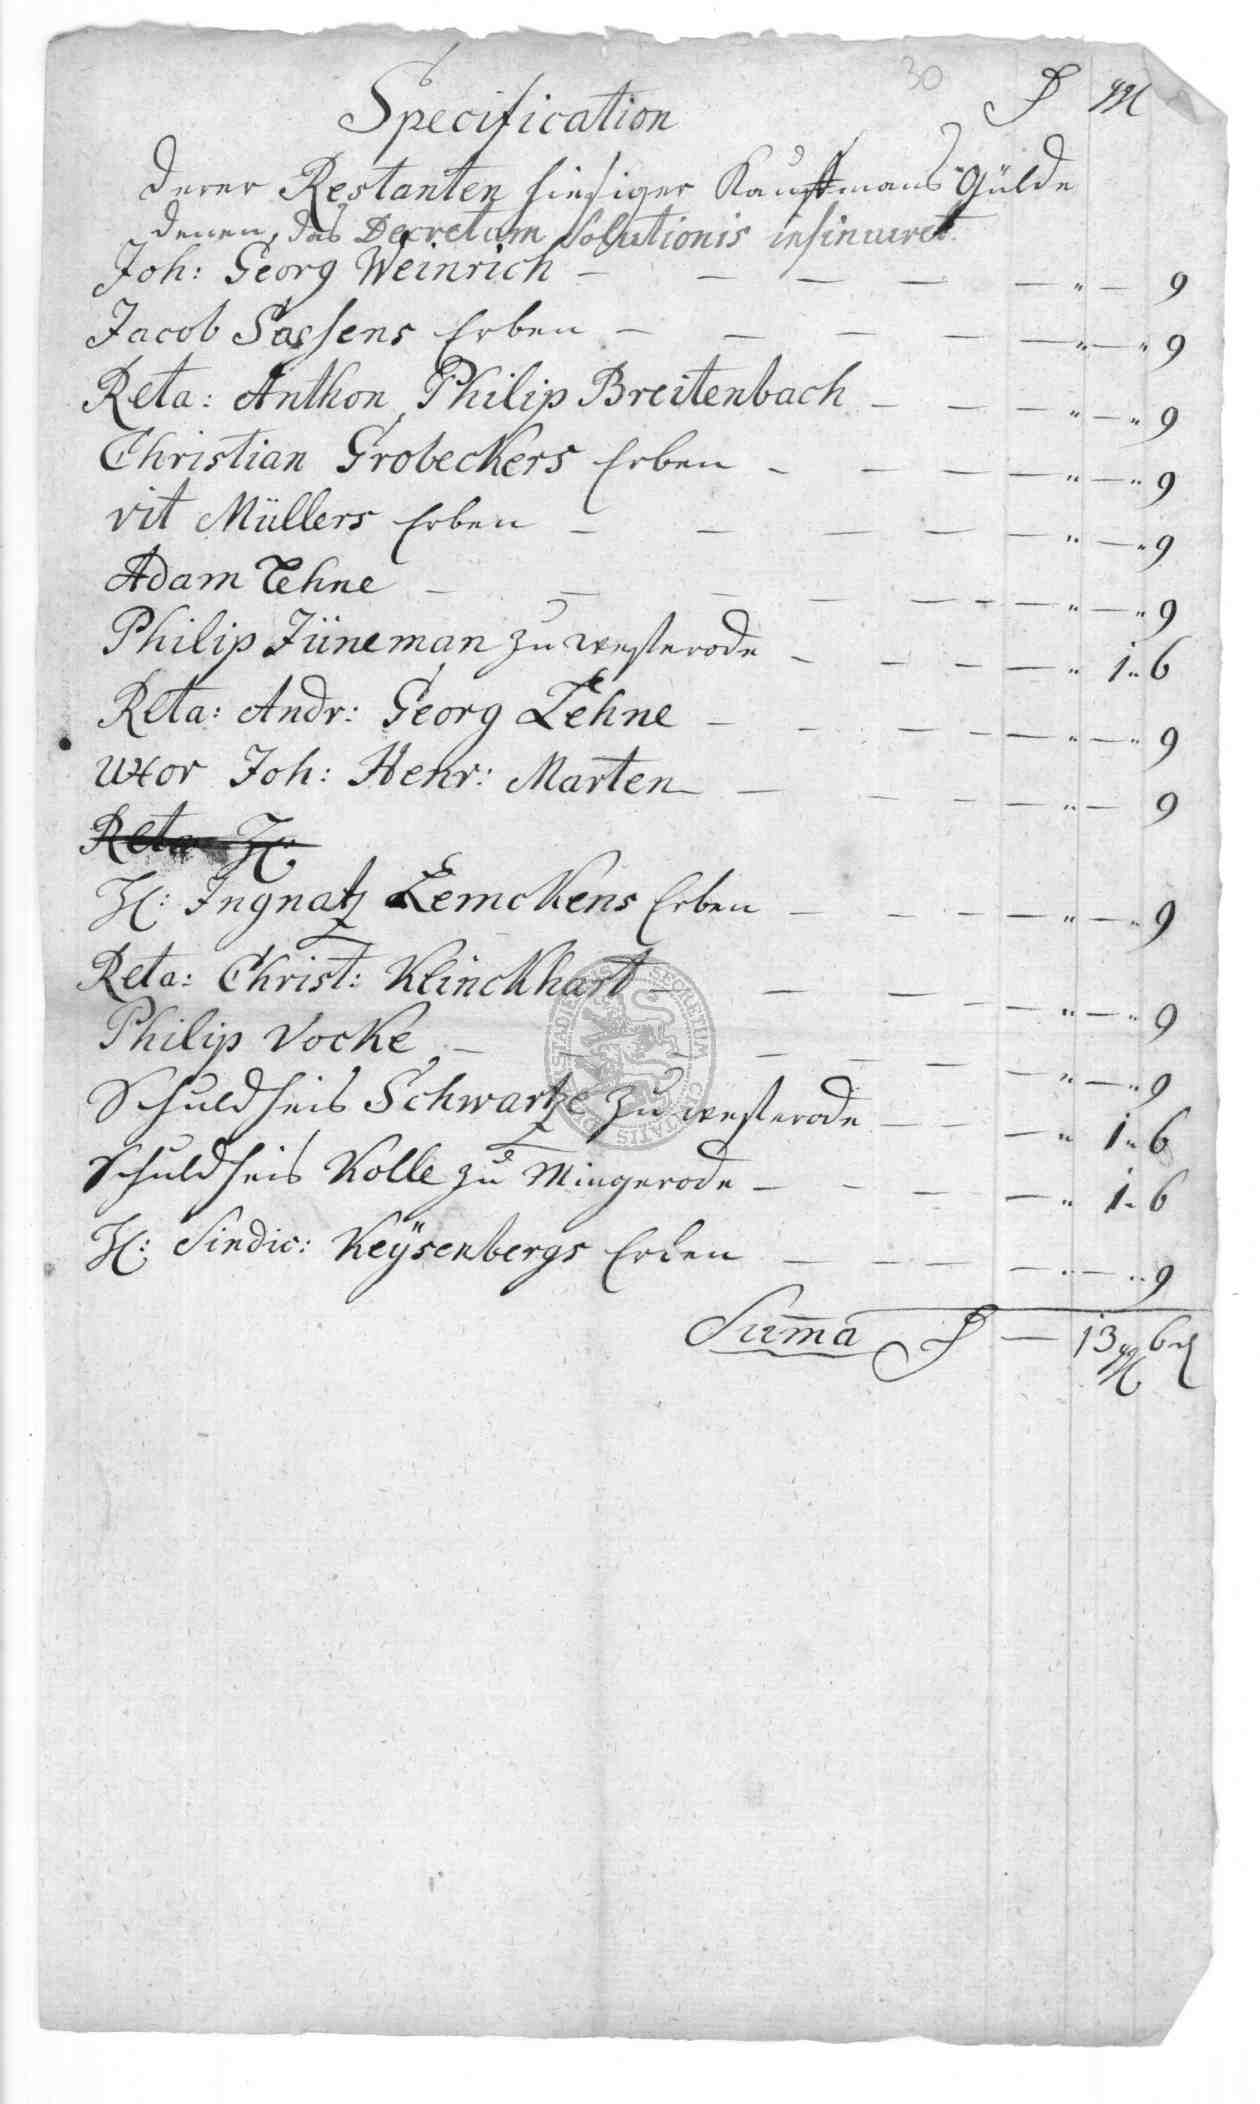 30
Specification
derer Restanten hiesiger Kauffmans Gülde
denen, das Decretum Solutionis insinuiret
Joh: Georg Weinrich — — — — — " — 9
Jacob Sassens Erben — — — — — " — " 9
Reta: Anthon Philip Breitenbach — — — " — " 9
Christian Grobeckers Erben — — — — " — " 9
vit Müllers Erben — — — — — " — " 9
Adam Zehne — — — — — — — " — " 9
Philip Jüneman zu westerode — — — — " 1 " 6
Reta: Andr: Georg Zehne — — — — — " — " 9
uxor Joh: Henr: Marten — — — — " — 9
Reta H:
H: Ingnatz Lemckens Erben — — — — " — " 9
Reta: Christ: Klinckhart — — — — — " — " 9
Philip Vocke — — — — — — — " — " 9
Schuldheis Schwartze zu westerode — — — " 1 " 6
Schuldheis Kolle zu Mingerode — — — — " 1 " 6
H: Sindic: Keÿsenbergs Erben — — — — " — " 9
Summa — 13 6